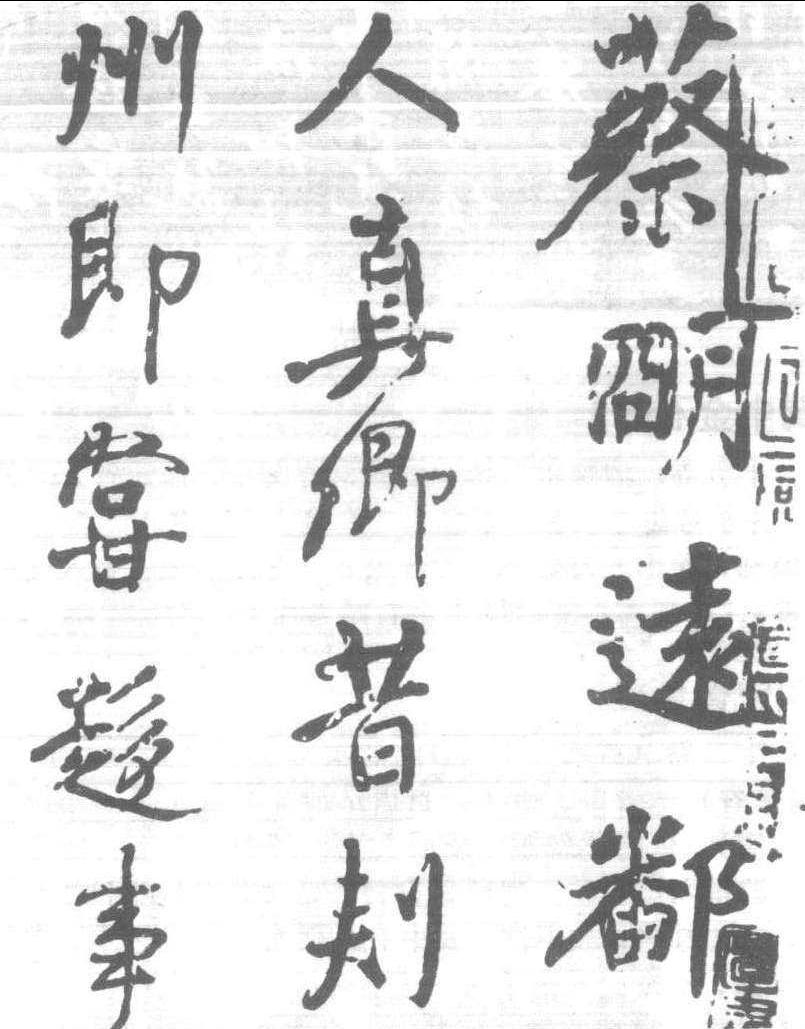 蔡明遠鄱陽
人真卿昔刺
州即嘗趨事